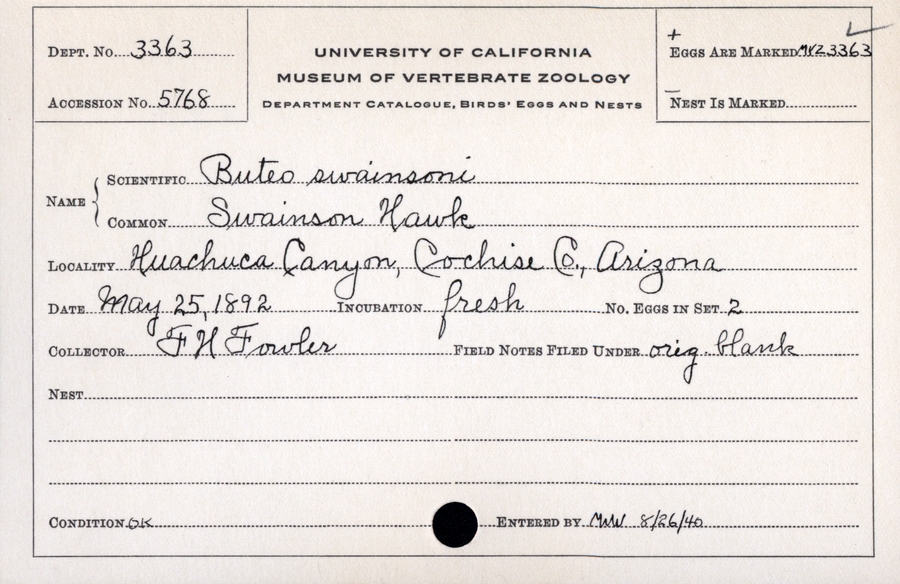 Dept. No. 3363
Accession No. 5768
UNIVERSITY OF CALIFORNIA
MUSEUM OF VERTEBRATE ZOOLOGY
Department Catalogue, Birds' Eggs and Nests
+
Eggs Are Marked MVZ 3363
–
Nest Is Marked
Name { Scientific Buteo swainsoni
Common Swainson Hawk
Locality Huachuca Canyon, Cochise Co., Arizona
Date May 25, 1892 Incubation fresh No. Eggs in Set 2
Collector F H Fowler Field Notes Filed Under orig. blank
Nest
Condition OK Entered by 8/26/40